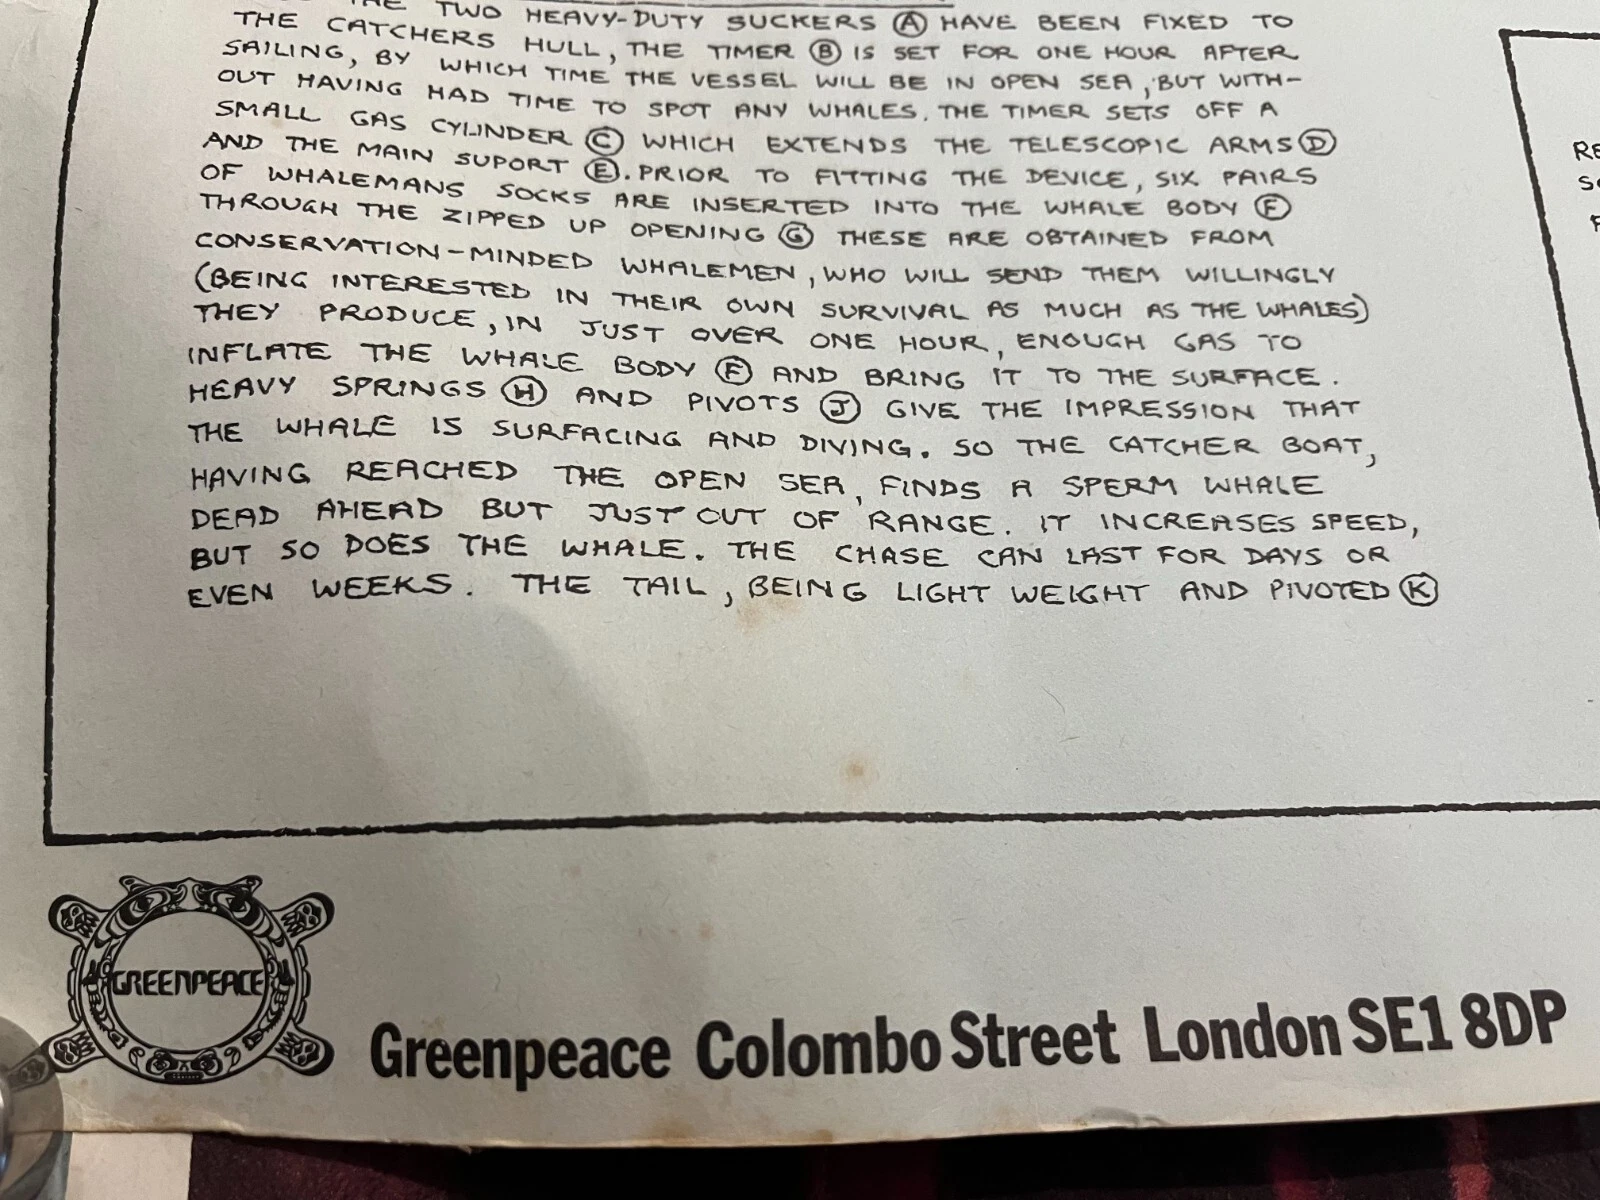 THE TWO HEAVY-DUTY SUCKERS Ⓐ HAVE BEEN FIXED TO
THE CATCHERS HULL, THE TIMER Ⓑ IS SET FOR ONE HOUR AFTER
SAILING, BY WHICH TIME THE VESSEL WILL BE IN OPEN SEA, BUT WITH-
OUT HAVING HAD TIME TO SPOT ANY WHALES. THE TIMER SETS OFF A
SMALL GAS CYLINDER Ⓒ WHICH EXTENDS THE TELESCOPIC ARMS Ⓓ
AND THE MAIN SUPORT Ⓔ. PRIOR TO FITTING THE DEVICE, SIX PAIRS
OF WHALEMANS SOCKS ARE INSERTED INTO THE WHALE BODY Ⓕ
THROUGH THE ZIPPED UP OPENING Ⓖ THESE ARE OBTAINED FROM
CONSERVATION-MINDED WHALEMEN, WHO WILL SEND THEM WILLINGLY
(BEING INTERESTED IN THEIR OWN SURVIVAL AS MUCH AS THE WHALES)
THEY PRODUCE, IN JUST OVER ONE HOUR, ENOUGH GAS TO
INFLATE THE WHALE BODY Ⓕ AND BRING IT TO THE SURFACE.
HEAVY SPRINGS Ⓗ AND PIVOTS Ⓙ GIVE THE IMPRESSION THAT
THE WHALE IS SURFACING AND DIVING. SO THE CATCHER BOAT,
HAVING REACHED THE OPEN SEA, FINDS A SPERM WHALE
DEAD AHEAD BUT JUST OUT OF RANGE. IT INCREASES SPEED,
BUT SO DOES THE WHALE. THE CHASE CAN LAST FOR DAYS OR
EVEN WEEKS. THE TAIL, BEING LIGHT WEIGHT AND PIVOTED Ⓚ
GREENPEACE
Greenpeace Colombo Street London SE1 8DP